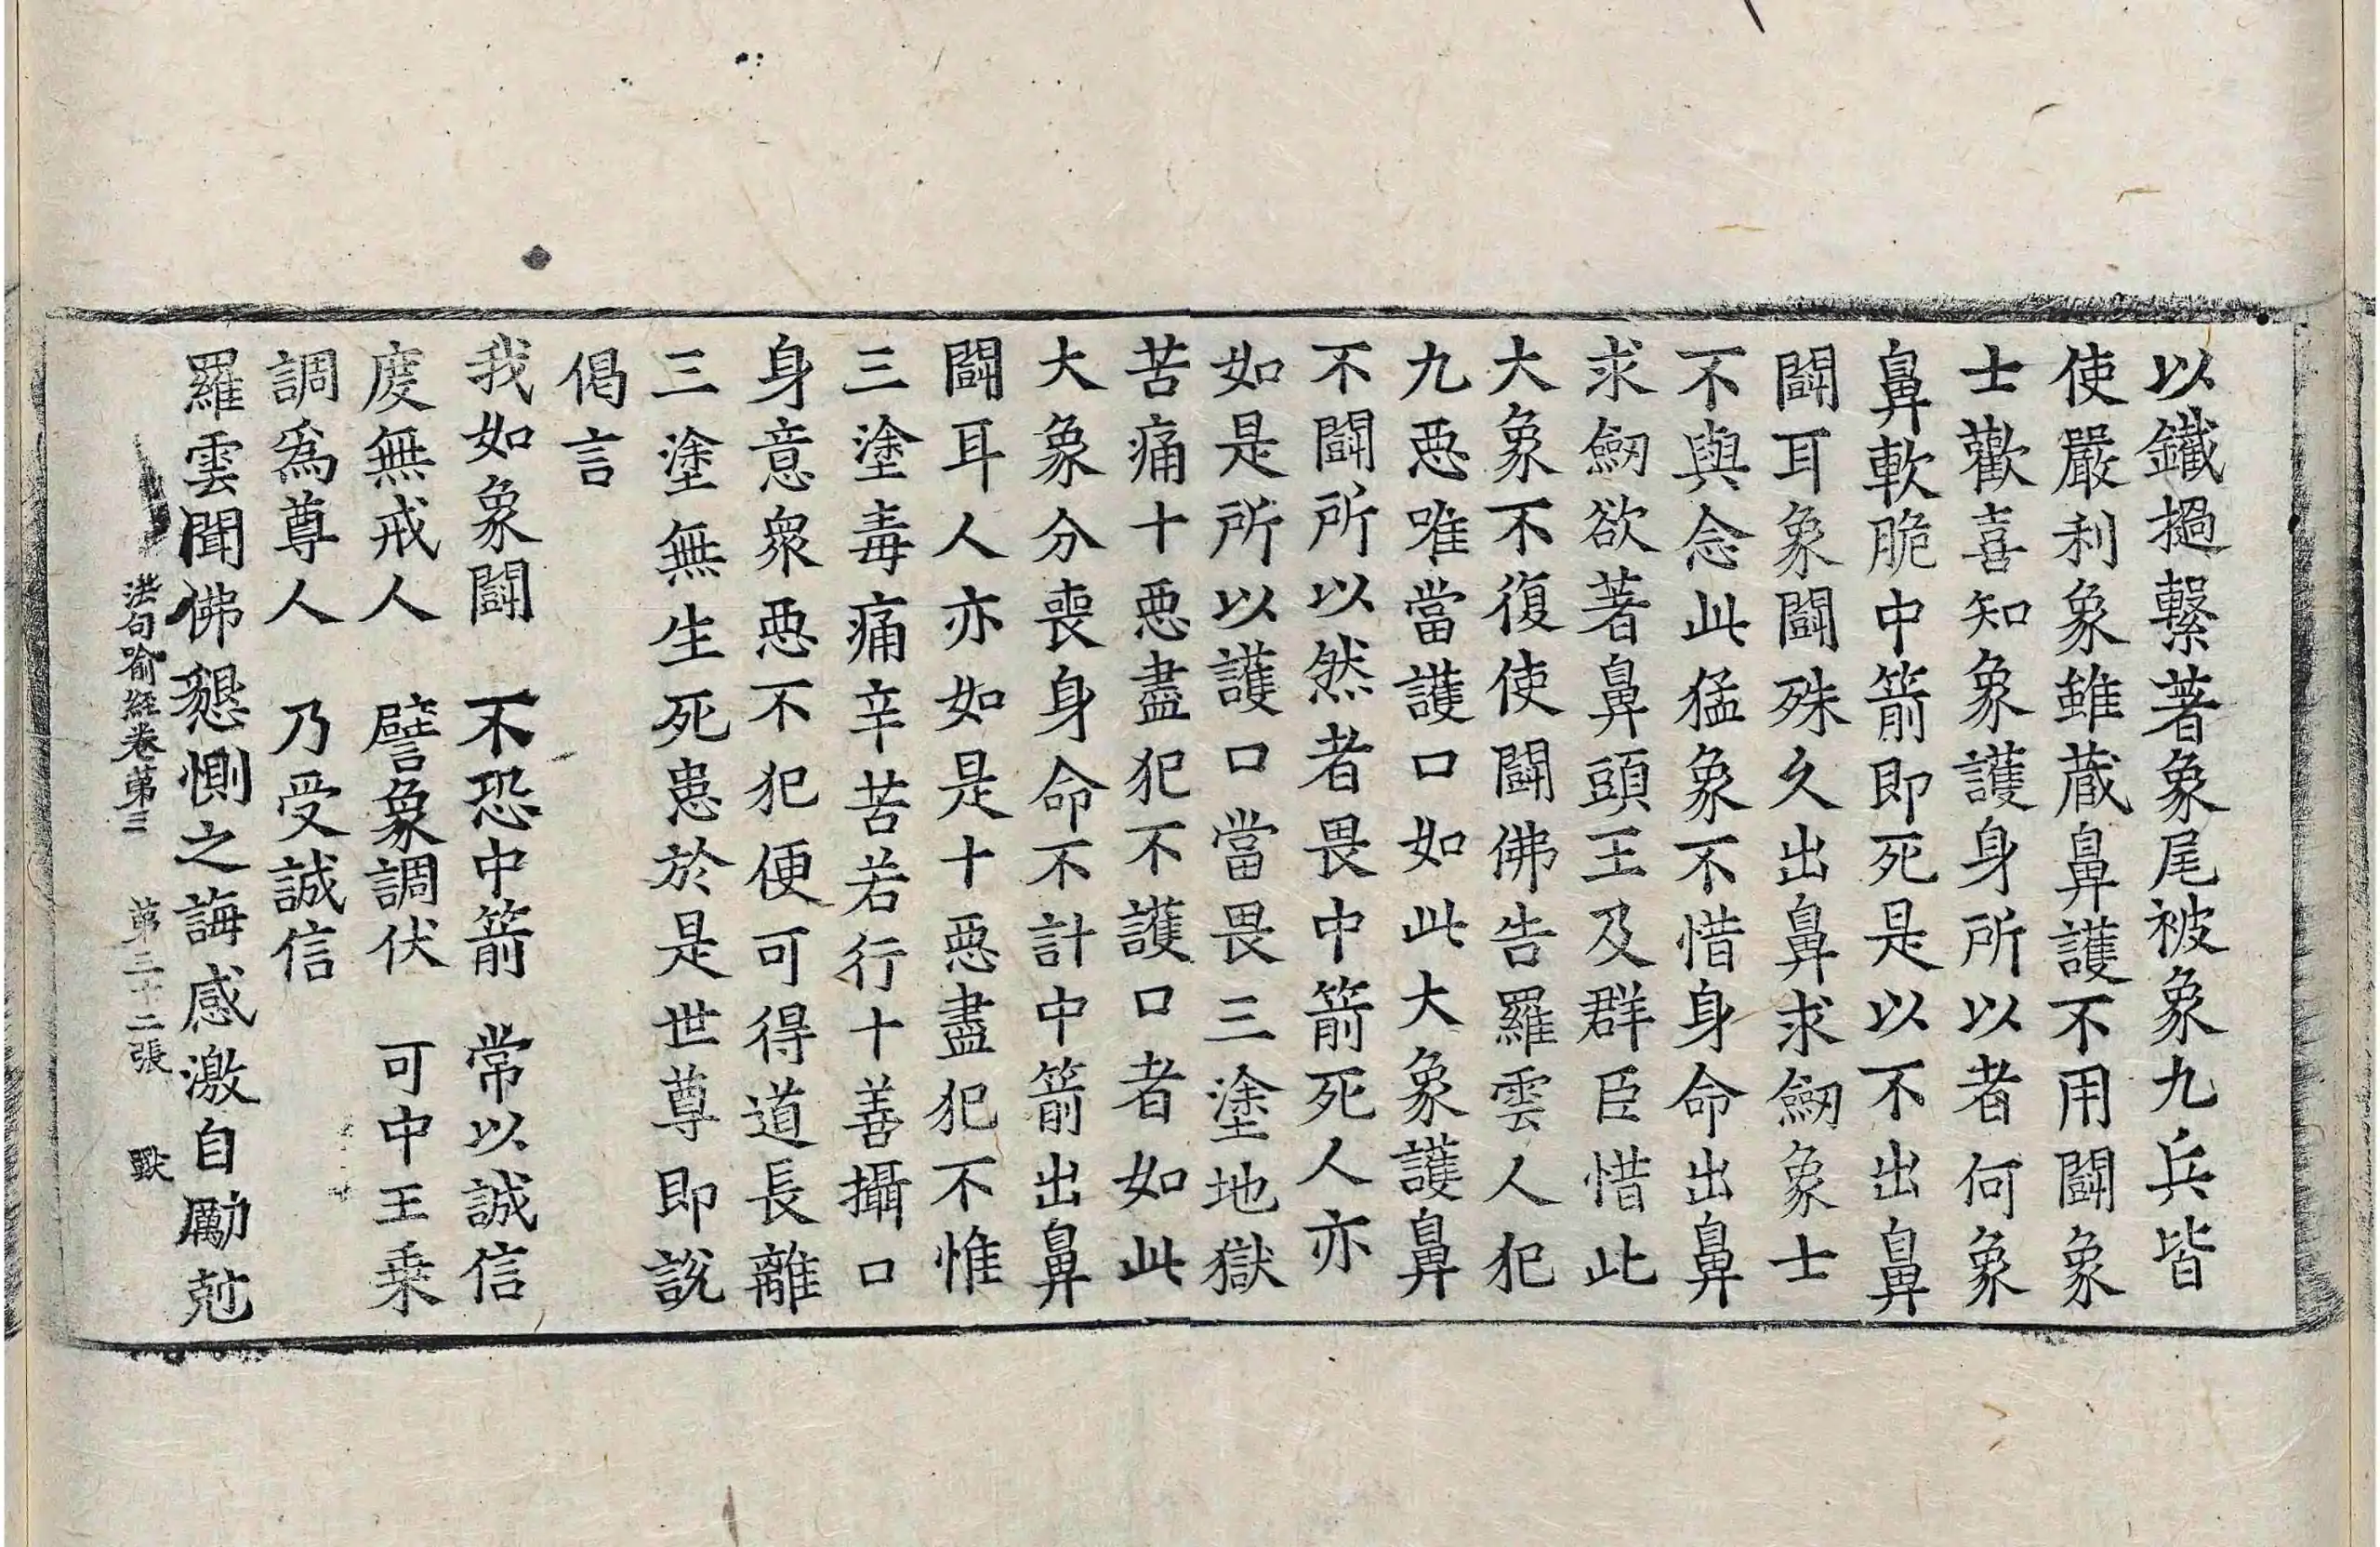 以鐵撾繫著象尾被象九兵皆
使嚴利象雖蔵鼻護不用鬪象
士歡喜知象護身所以者何象
鼻軟脆中箭即死是以不出鼻
鬪耳象鬪殊久出鼻求劒象士
不與念此猛象不惜身命出鼻
求劒欲著鼻頭王及群臣惜此
大象不復使鬪佛告羅雲人犯
九惡唯當護口如此大象護鼻
不鬪所以然者畏中箭死人亦
如是所以護口當畏三塗地獄
苦痛十惡盡犯不護口者如此
大象分喪身命不計中箭出鼻
鬪耳人亦如是十惡盡犯不惟
三塗毒痛辛苦若行十善攝口
身意衆惡不犯便可得道長離
三塗無生死患於是世尊即說
偈言
我如象鬪　不恐中箭　常以誠信
度無戒人　譬象調伏　可中王乗
調爲尊人　乃受誠信
羅雲聞佛懇惻之誨感激自勵尅
法句喻経卷第三　第三十二張　獸